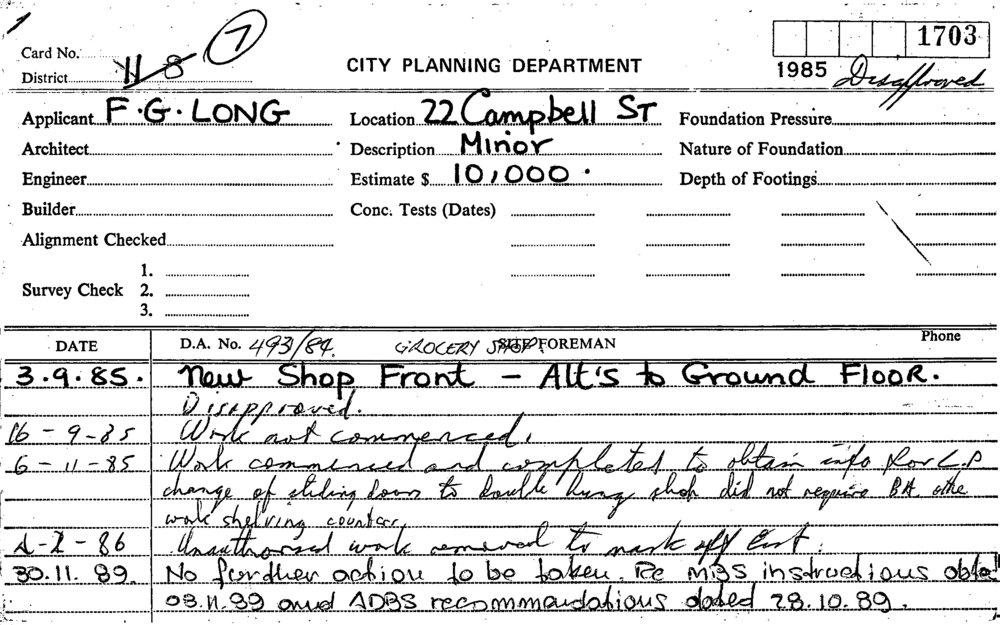 7
1703
Card No.
118
District
CITY PLANNING DEPARTMENT
1985 Disapproved
Applicant F.G. LONG
Location 22 Campbell ST
Foundation Pressure
Architect
Description Minor
Nature of Foundation
Engineer
Estimate $ 10,000.
Depth of Footings
Builder
Conc. Tests (Dates)
Alignment Checked
1.
Survey Check 2.
3.
DATE D.A. No. 493/84. GROCERY SHOP. FOREMAN Phone
3.9.85. New Shop Front - Alt's to Ground Floor.
Disapproved.
16-9-85 Work not commenced.
6-11-85 Work commenced and completed to obtain info
change of sliding doors to double hung shop did not require BA
work shelving counter
86 Unauthorised work removed to mark off
30.11.89. No further action to be taken. Re instructions
and ADBS recommendations dated 28.10.89.